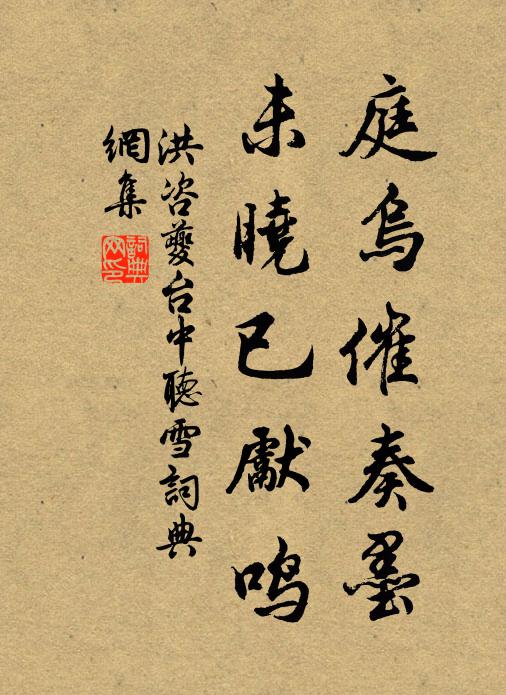 庭烏催奏墨
未曉已獻鳴
洪咨夔台中聽雪詞典
網集
詞典网印